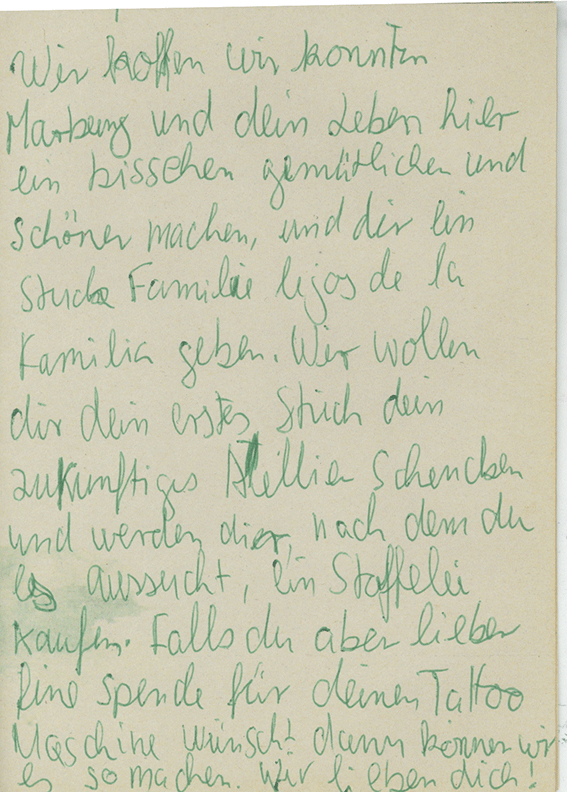 Wir hoffen wir konnten
Marburg und dein Leben hier
ein bisschen gemütlicher und
schöner machen, und dir ein
Stuck Familie lejos de la
Familia geben. Wir wollen
dir dein erstes Stück dein
zukunftiges Atellier schencken
und werden dier, nach dem du
es aussucht, ein Staffelei
kaufen. Falls du aber lieber
Eine spende für deinen Tattoo
Maschine wünscht dann können wir
es so machen. Wir lieben dich!